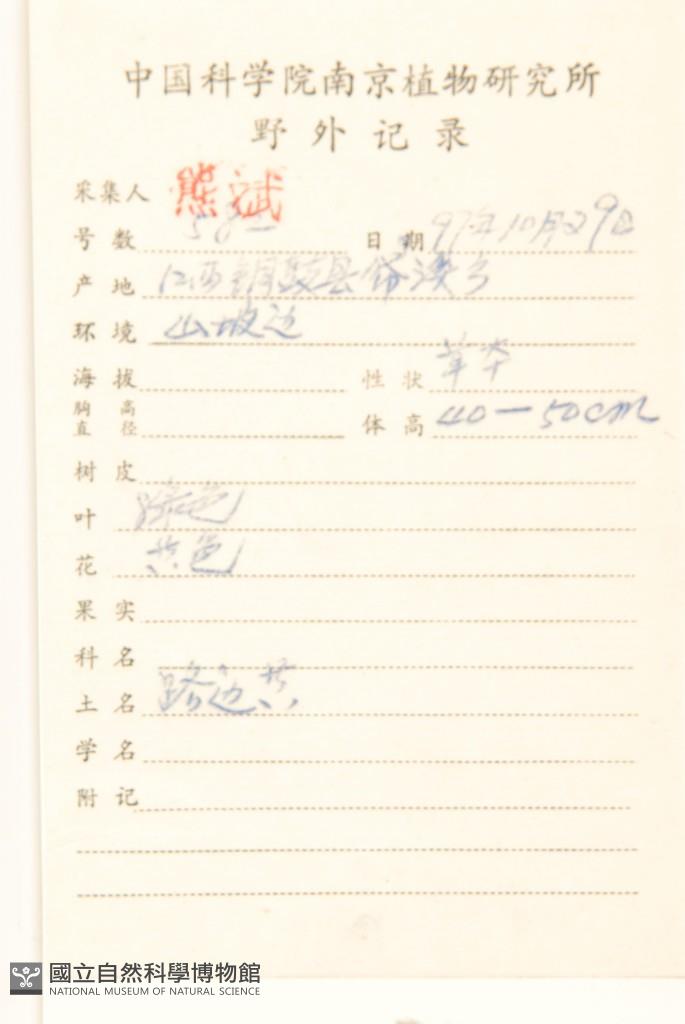 中国科学院南京植物研究所
野外记录
采集人 熊斌
号数 日期 97年10月29日
产地 江西铜鼓县 乡
环境 山坡边
海拔 性状 草本
胸高直径 体高 40－50cm
树皮
叶 绿色
花 黄色
果实
科名
土名 路边黄
学名
附记
國立自然科學博物館
NATIONAL MUSEUM OF NATURAL SCIENCE